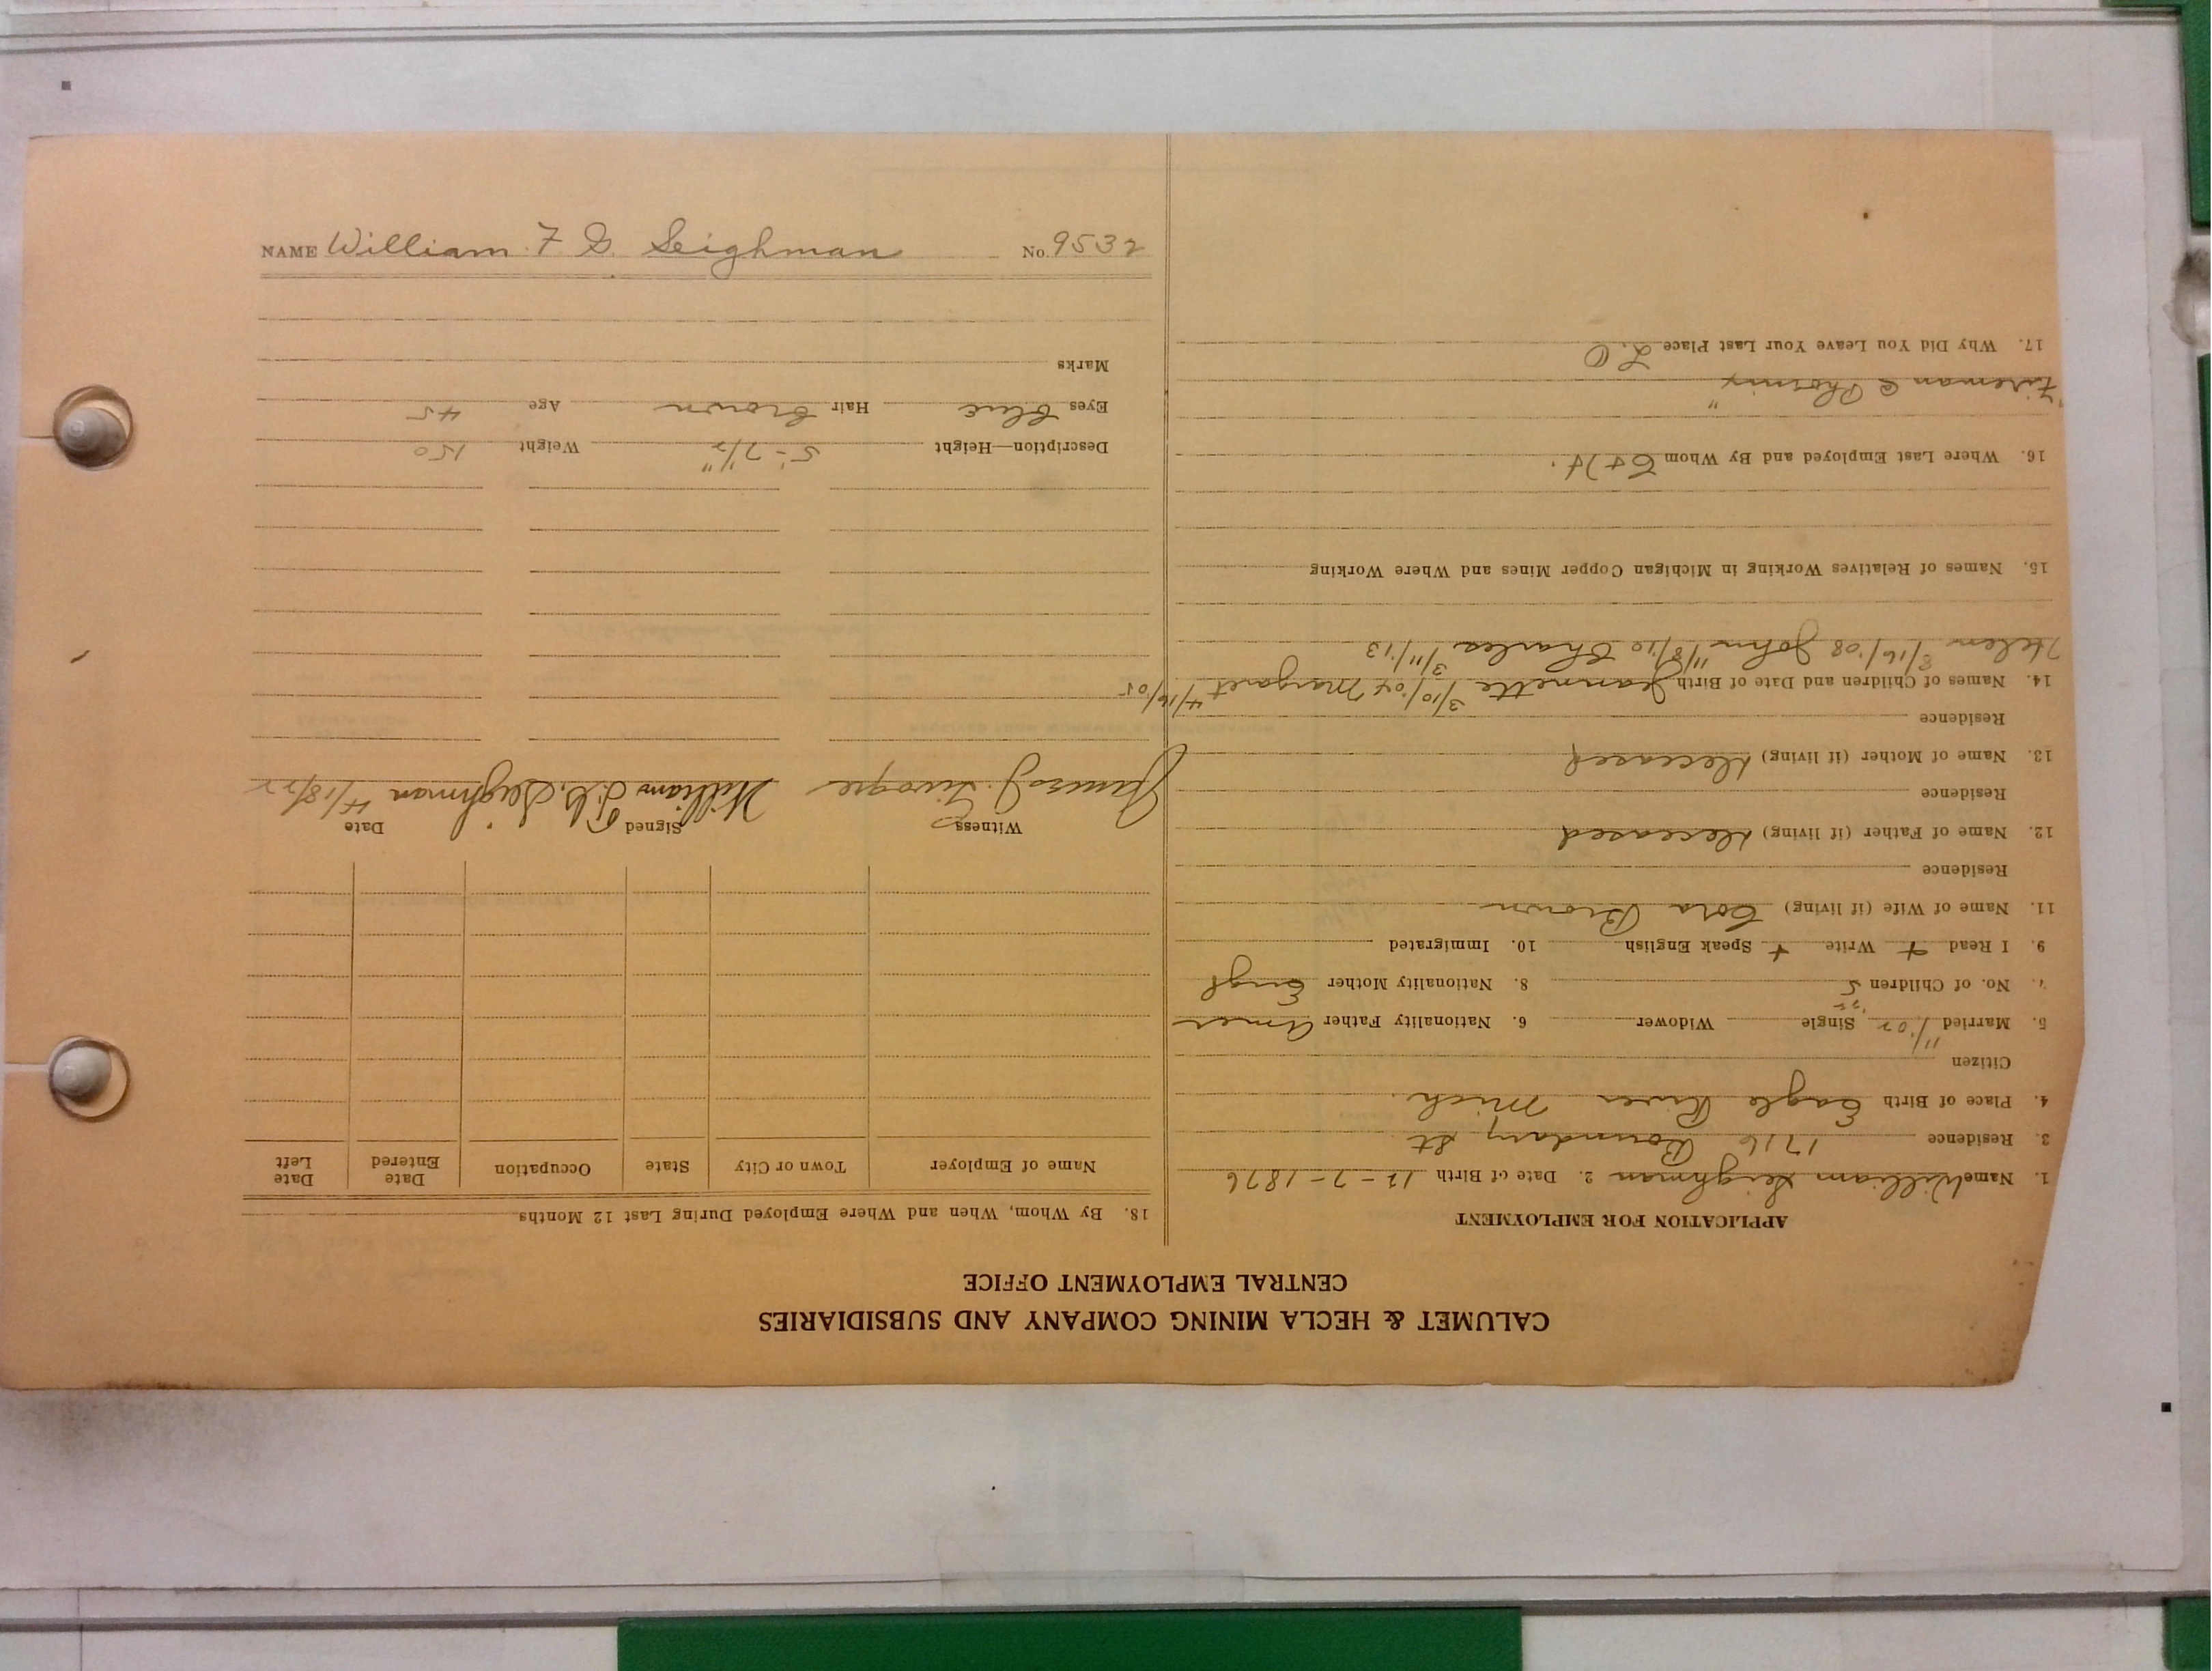 CALUMET & HECLA MINING COMPANY AND SUBSIDIARIES
CENTRAL EMPLOYMENT OFFICE
APPLICATION FOR EMPLOYMENT
1. Name William Seighman 2. Date of Birth 12-7-1876
3. Residence 1716 Boundary St
4. Place of Birth Eagle River Mich.
Citizen
5. Married 11/'02 Single Widower 6. Nationality Father Amer
7. No. of Children 5 8. Nationality Mother Engl
9. I Read + Write + Speak English 10. Immigrated
11. Name of Wife (if living) Cora Brown
Residence
12. Name of Father (if living) Deceased
Residence
13. Name of Mother (if living) Deceased
Residence
14. Names of Children and Date of Birth Jeannette 3/10/'04 Margaret 4/16/05
Helen 8/16/'08 John 11/8/'10 Charles 3/11/'13
15. Names of Relatives Working in Michigan Copper Mines and Where Working
16. Where Last Employed and By Whom C+H.
"Fireman @ Phoenix"
17. Why Did You Leave Your Last Place L.O
18. By Whom, When and Where Employed During Last 12 Months
Name of Employer Town or City State Occupation Date Entered Date Left
Witness Signed Date
James J. William F.G. Seighman 4/18/22
Description—Height 5'-7 1/2" Weight 150
Eyes blue Hair brown Age 45
Marks
NAME William F G. Seighman No. 9532